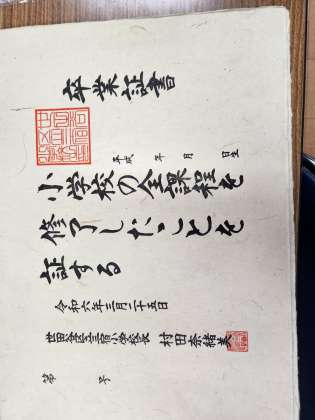 卒業証書
平成 年 月 日生
小学校の全課程を
修了したことを
証する
令和六年三月二十五日
世田谷区立三宿小学校長 村田奈緒美
第 号